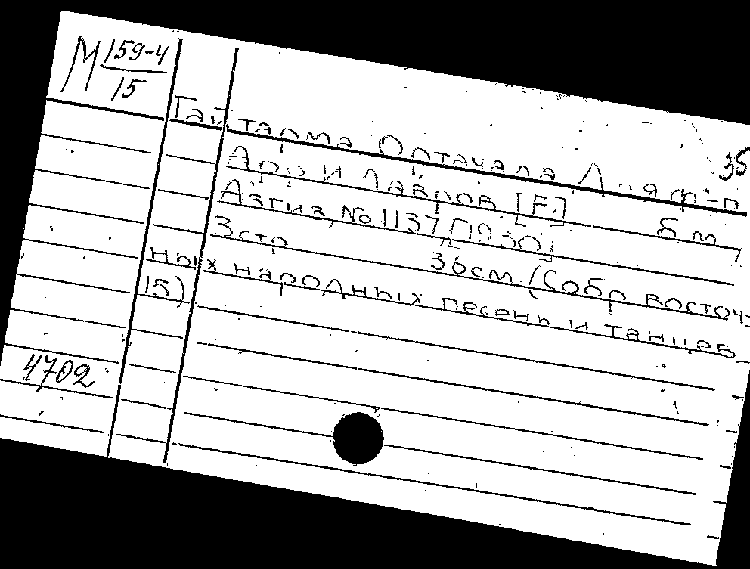 М 159-4
15
35
Гайтарма Ортачала Для ф-п
Арр И Лавров [Б.] б.м,
Азгиз, No 1137, [1930]
3стр 36см (Собр восточ-
ных народных песень и танцев
15)
4702